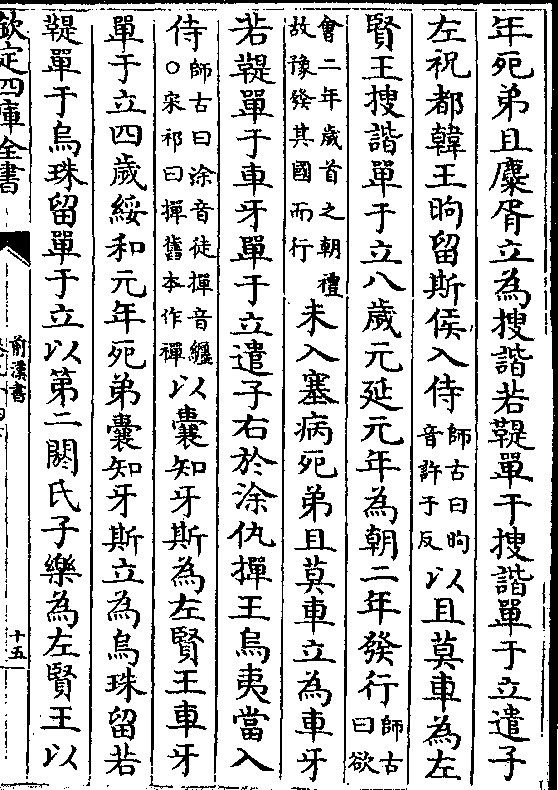 年死弟且麋胥立為搜諧若鞮單于搜諧單于立遣子
左祝都韓王昫留斯侯入侍師古曰昫音許于反以且莫車為左
賢王搜諧單于立八歲元延元年為朝二年發行師古曰欲
會二年歲首之朝禮故豫發其國而行未入塞病死弟且莫車立為車牙
若鞮單于車牙單于立遣子右於涂仇撣王烏夷當入
侍師古曰涂音徒撣音纏○宋祁曰撣舊本作禪以囊知牙斯為左賢王車牙
單于立四歲綏和元年死弟囊知牙斯立為烏珠留若
鞮單于烏珠留單于立以第二閼氏子樂為左賢王以
欽定四庫全書
前漢書
十五